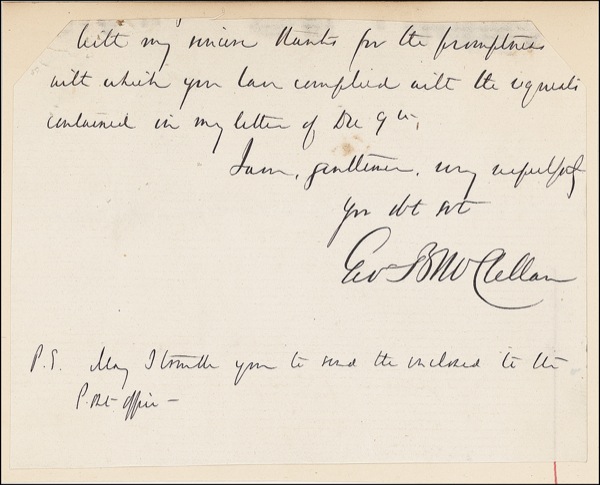 With my sincere thanks for the promptness
with which you have complied with the requests
contained in my letter of Dec 9th,
I am, gentlemen, very respectfully
yr obt svt
Geo B McClellan
P.S. May I trouble you to send the enclosed to the
Post office —